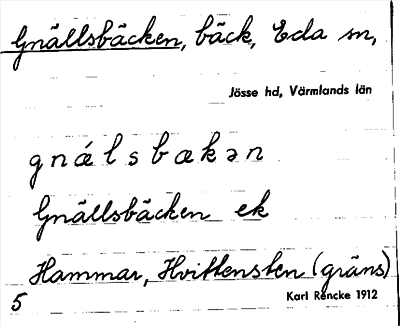 Gnällsbäcken, bäck, Eda sn,
Jösse hd, Värmlands län
gnǽlsbækən
Gnällsbäcken ek
Hammar, Hvittensten (gräns)
5
Karl Rencke 1912